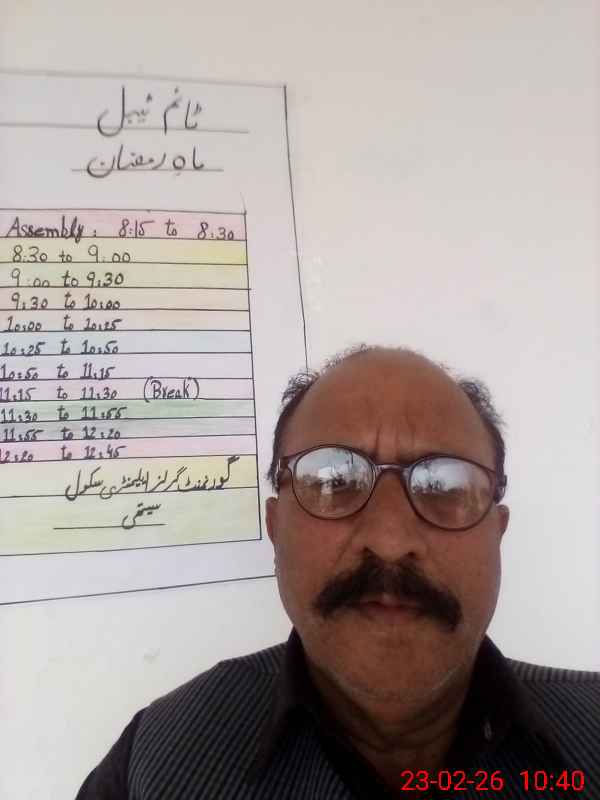 ٹائم ٹیبل
ماہِ رمضان
Assembly: 8:15 to 8:30
8:30 to 9:00
9:00 to 9:30
9:30 to 10:00
10:00 to 10:25
10:25 to 10:50
10:50 to 11:15
11:15 to 11:30 (Break)
11:30 to 11:55
11:55 to 12:20
12:20 to 12:45
گورنمنٹ گرلز ایلیمنٹری سکول
23-02-26 10:40